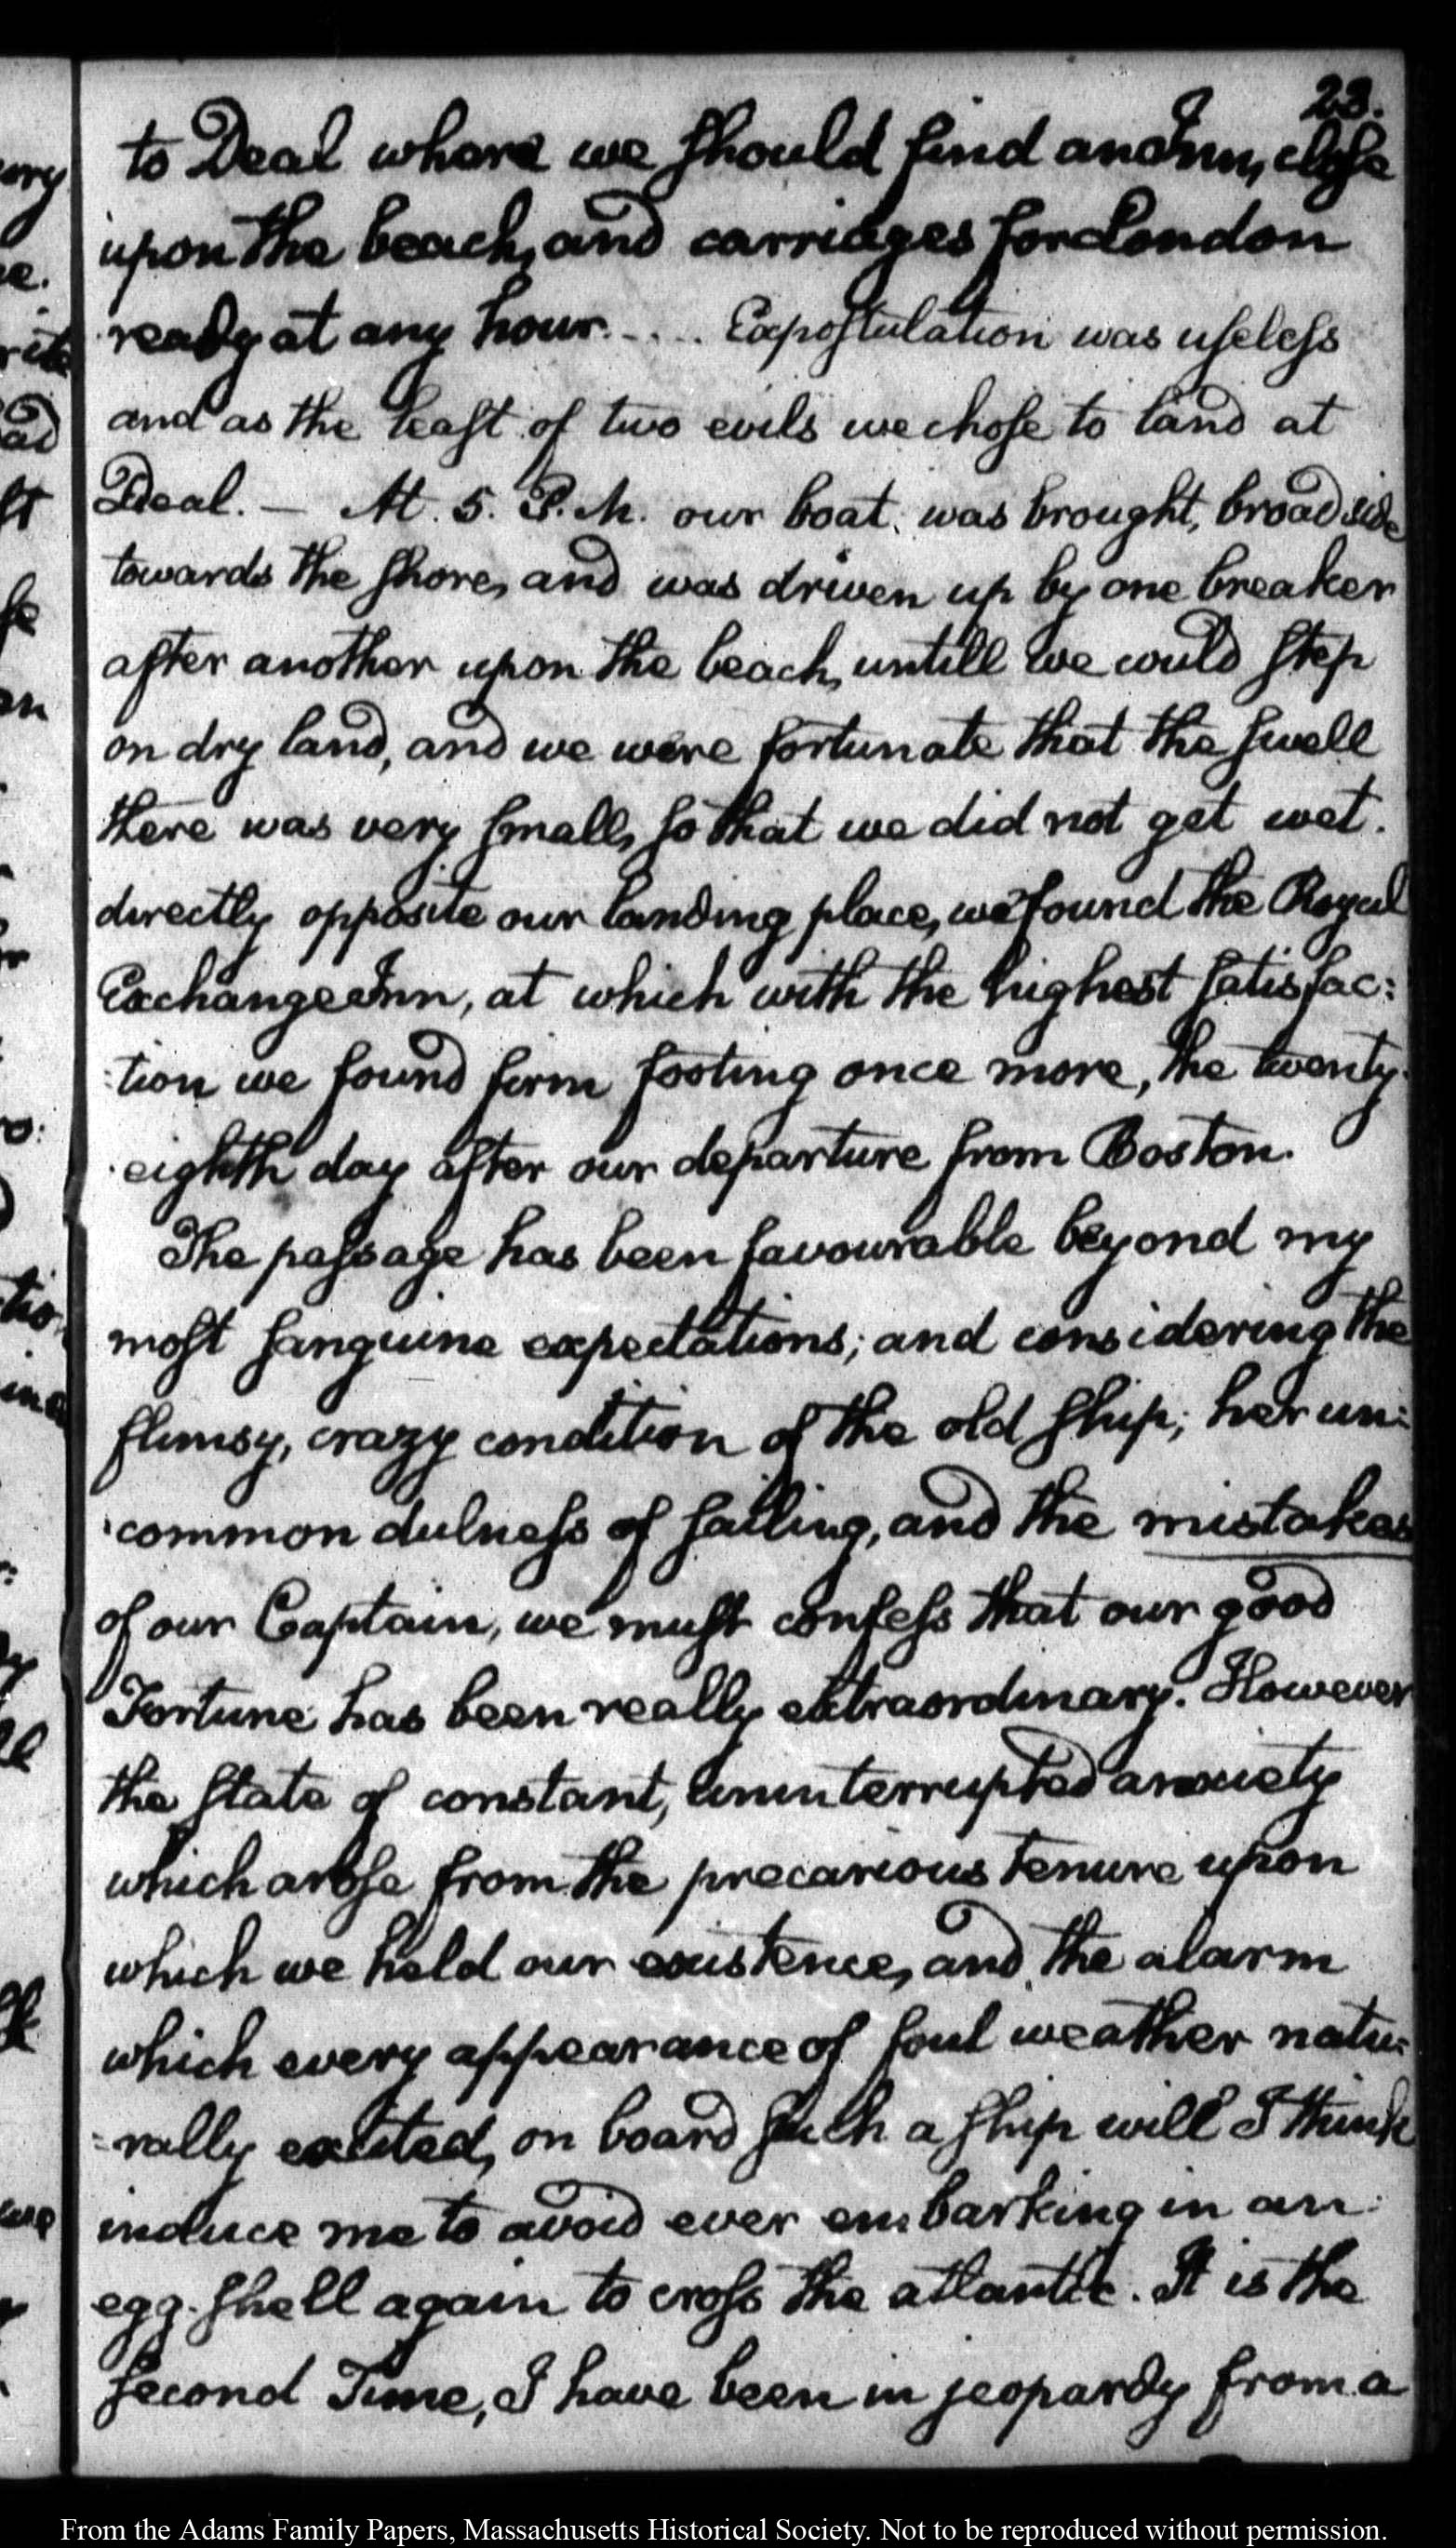 23.
to Deal where we should find an Inn, close
upon the beach, and carriages for London
ready at any hour..... Expostulation was useless
and as the least of two evils we chose to land at
Deal. — At. 5. P.M. our boat was brought, broad side
towards the shore, and was driven up by one breaker
after another upon the beach, untill we could step
on dry land, and we were fortunate that the swell
there was very small, so that we did not get wet.
directly opposite our landing place, we found the Royal
Exchange Inn, at which with the highest satisfac:
:tion we found firm footing once more, the twenty-
eighth day after our departure from Boston.
The passage has been favourable beyond my
most sanguine expectations; and considering the
flimsy, crazy condition of the old ship; her un:
:common dulness of sailing, and the mistakes
of our Captain, we must confess that our good
Fortune has been really extraordinary. However
the state of constant, uninterrupted anxiety
which arose from the precarious tenure upon
which we held our existence, and the alarm
which every appearance of foul weather natu:
:rally excited, on board such a ship will I think
induce me to avoid ever embarking in an
egg-shell again to cross the atlantic. It is the
second Time, I have been in jeopardy from a
From the Adams Family Papers, Massachusetts Historical Society. Not to be reproduced without permission.